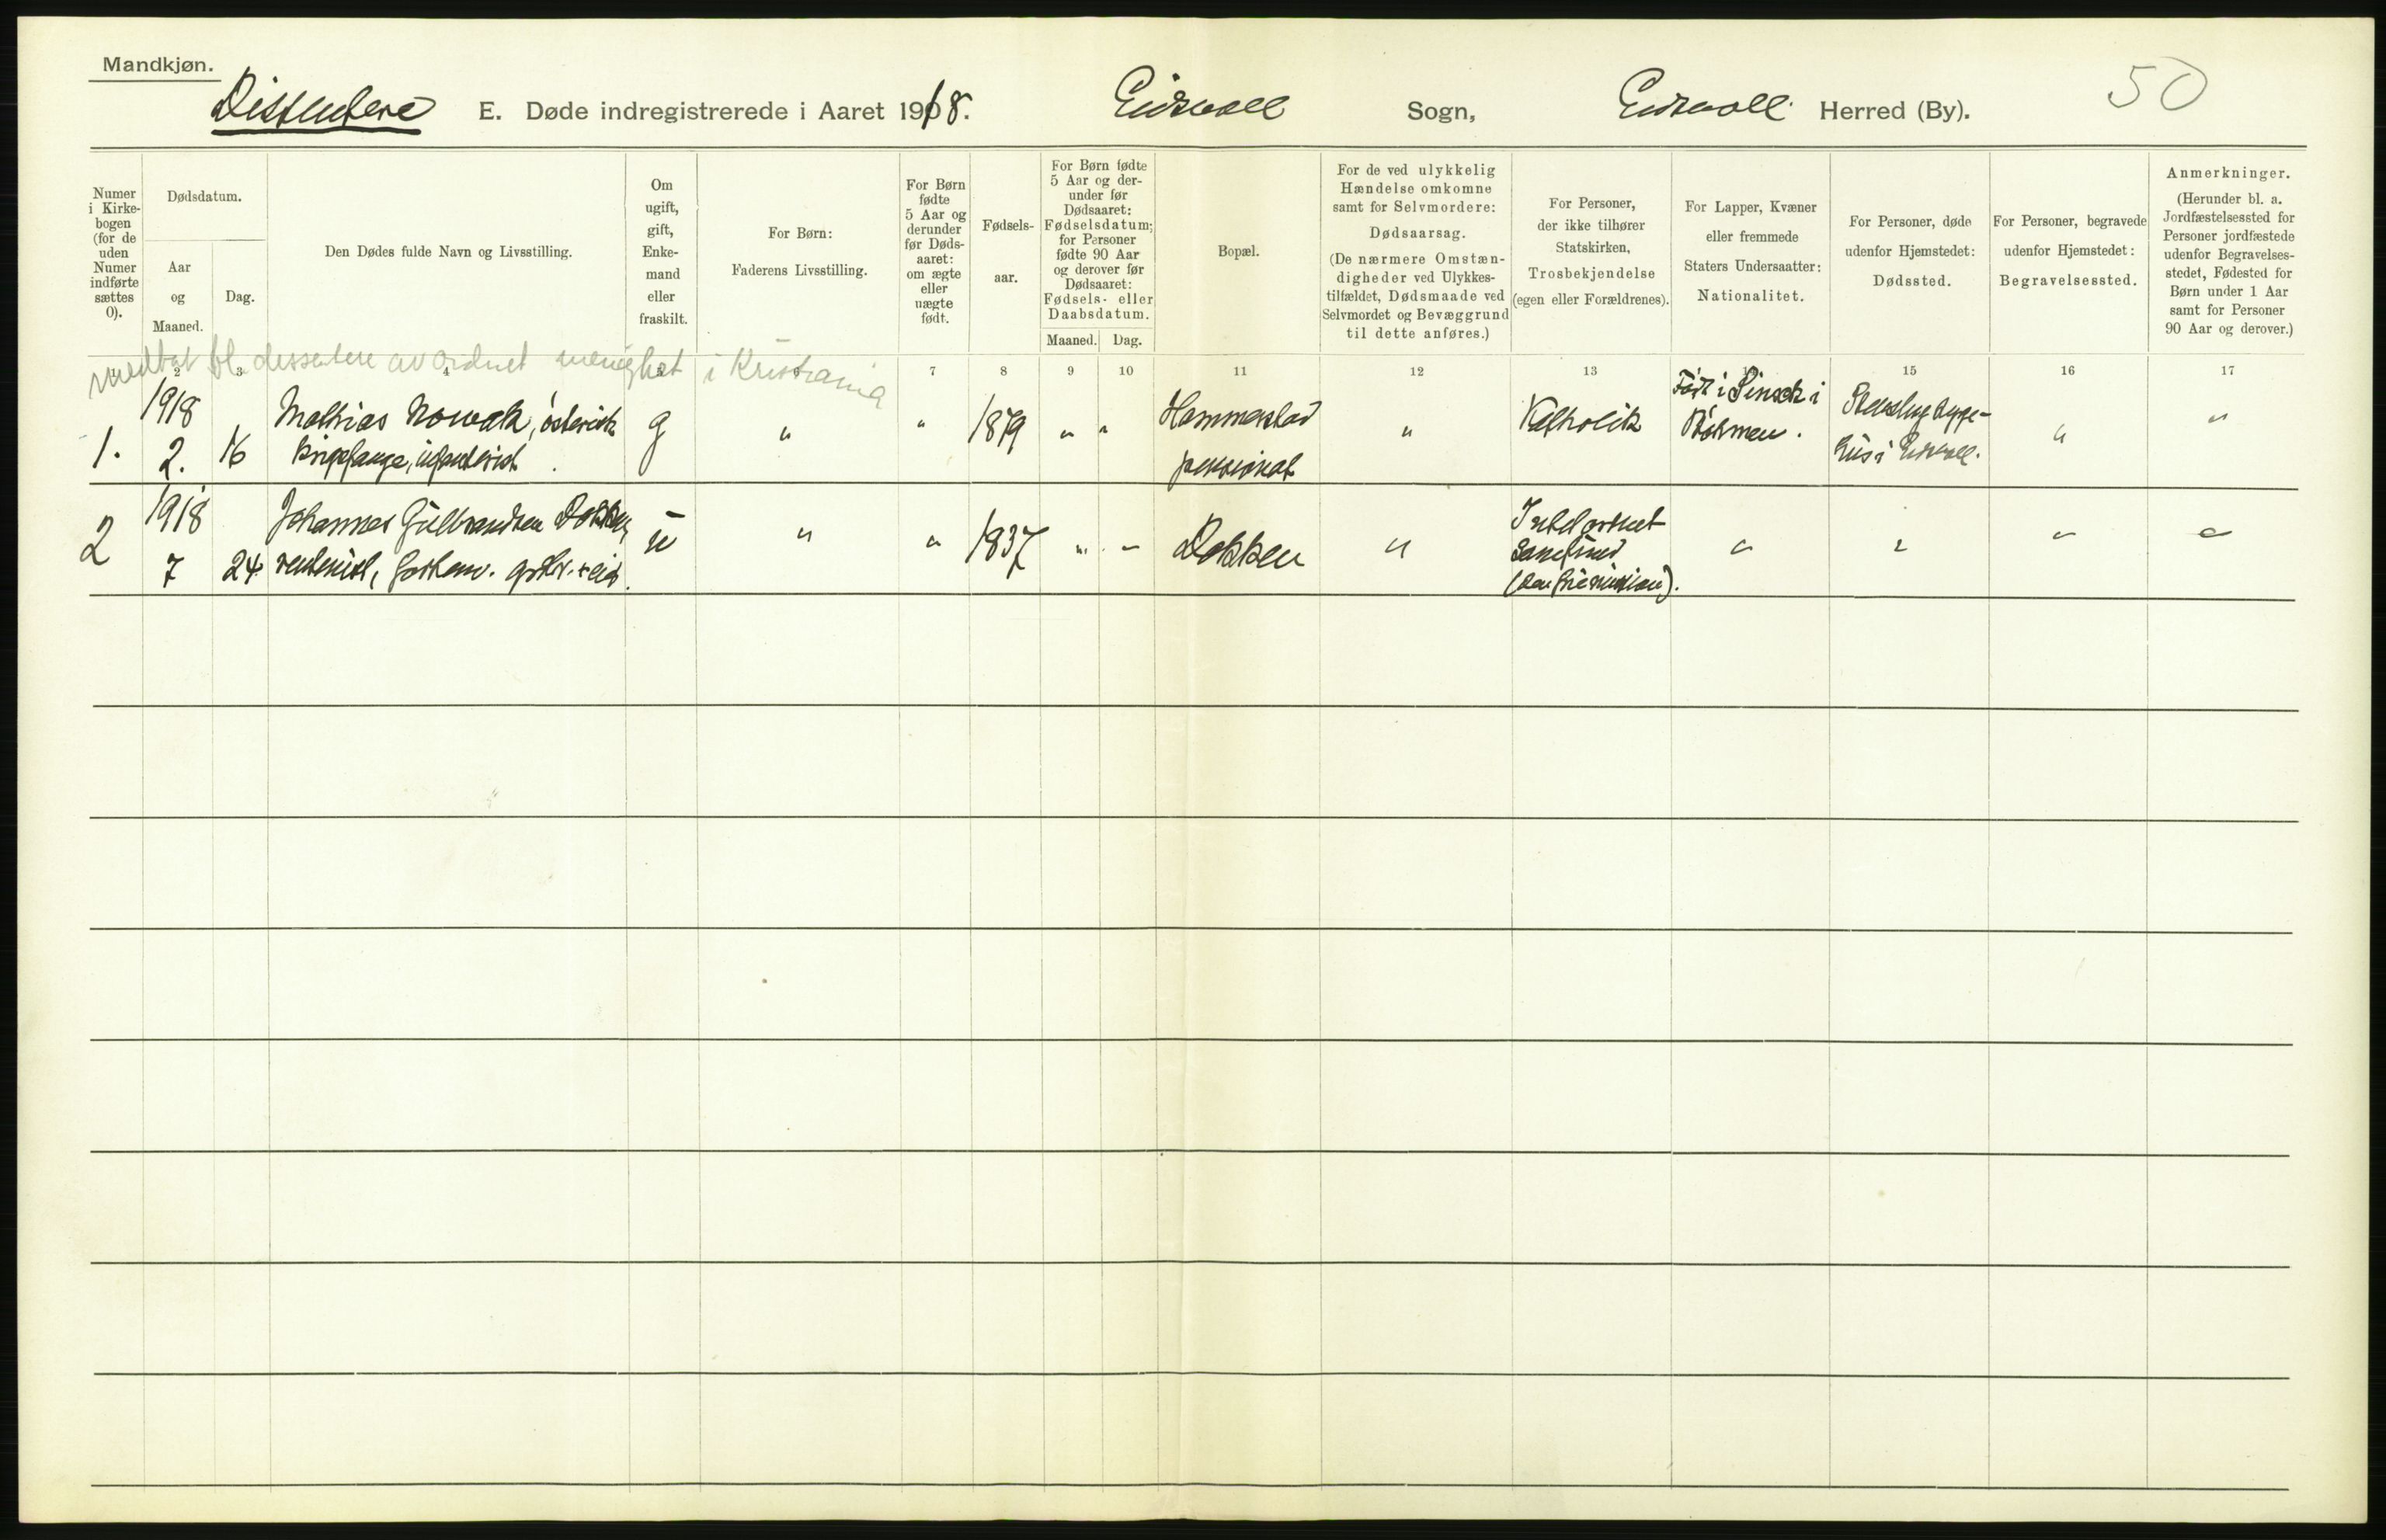 Mandkjøn.
Dissentere E. Døde indregistrerede i Aaret 1918. Eidsvoll Sogn, Eidsvoll Herred (By). 50
Numer i Kirke- bogen (for de uden Numer indførte sættes 0).
Dødsdatum.
Aar og Maaned.
Dag.
Den Dødes fulde Navn og Livsstilling.
Om ugift, gift, Enke- mand eller fraskilt.
For Børn: Faderens Livsstilling.
For Børn fødte 5 Aar og derunder før Døds- aaret: om ægte eller uægte født.
Fødsels- aar.
For Børn fødte 5 Aar og der- under før Dødsaaret: Fødselsdatum; for Personer fødte 90 Aar og derover før Dødsaaret: Fødsels- eller Daabsdatum.
Maaned. Dag.
Bopæl.
For de ved ulykkelig Hændelse omkomne samt for Selvmordere: Dødsaarsag. (De nærmere Omstæn- digheder ved Ulykkes- tilfældet, Dødsmaade ved Selvmordet og Bevæggrund til dette anføres.)
For Personer, der ikke tilhører Statskirken, Trosbekjendelse (egen eller Forældrenes).
For Lapper, Kvæner eller fremmede Staters Undersaatter: Nationalitet.
For Personer, døde udenfor Hjemstedet: Dødssted.
For Personer, begravede udenfor Hjemstedet: Begravelsessted.
Anmerkninger. (Herunder bl. a. Jordfæstelsessted for Personer jordfæstede udenfor Begravelses- stedet, Fødested for Børn under 1 Aar samt for Personer 90 Aar og derover.)
medtat bl. dissentere av ordnet menighet i Kristiania
2 3 4 5 6 7 8 9 10 11 12 13 14 15 16 17
1918 Mathias Nowak, østerisk Hammerstad Katholik Født i Pinsck i Stensby syge-
1. 2. 16 krigsfange, g " " 1879 " " pensionat " Bøhmen. hus i Eidsvoll. " "
1918 Johannes Gulbrandsen Dokken, Intet ordnet
2 7 24 rentenist, forhenv. u " " 1837 " " Dokken " samfund " " " "
(den frie mission).